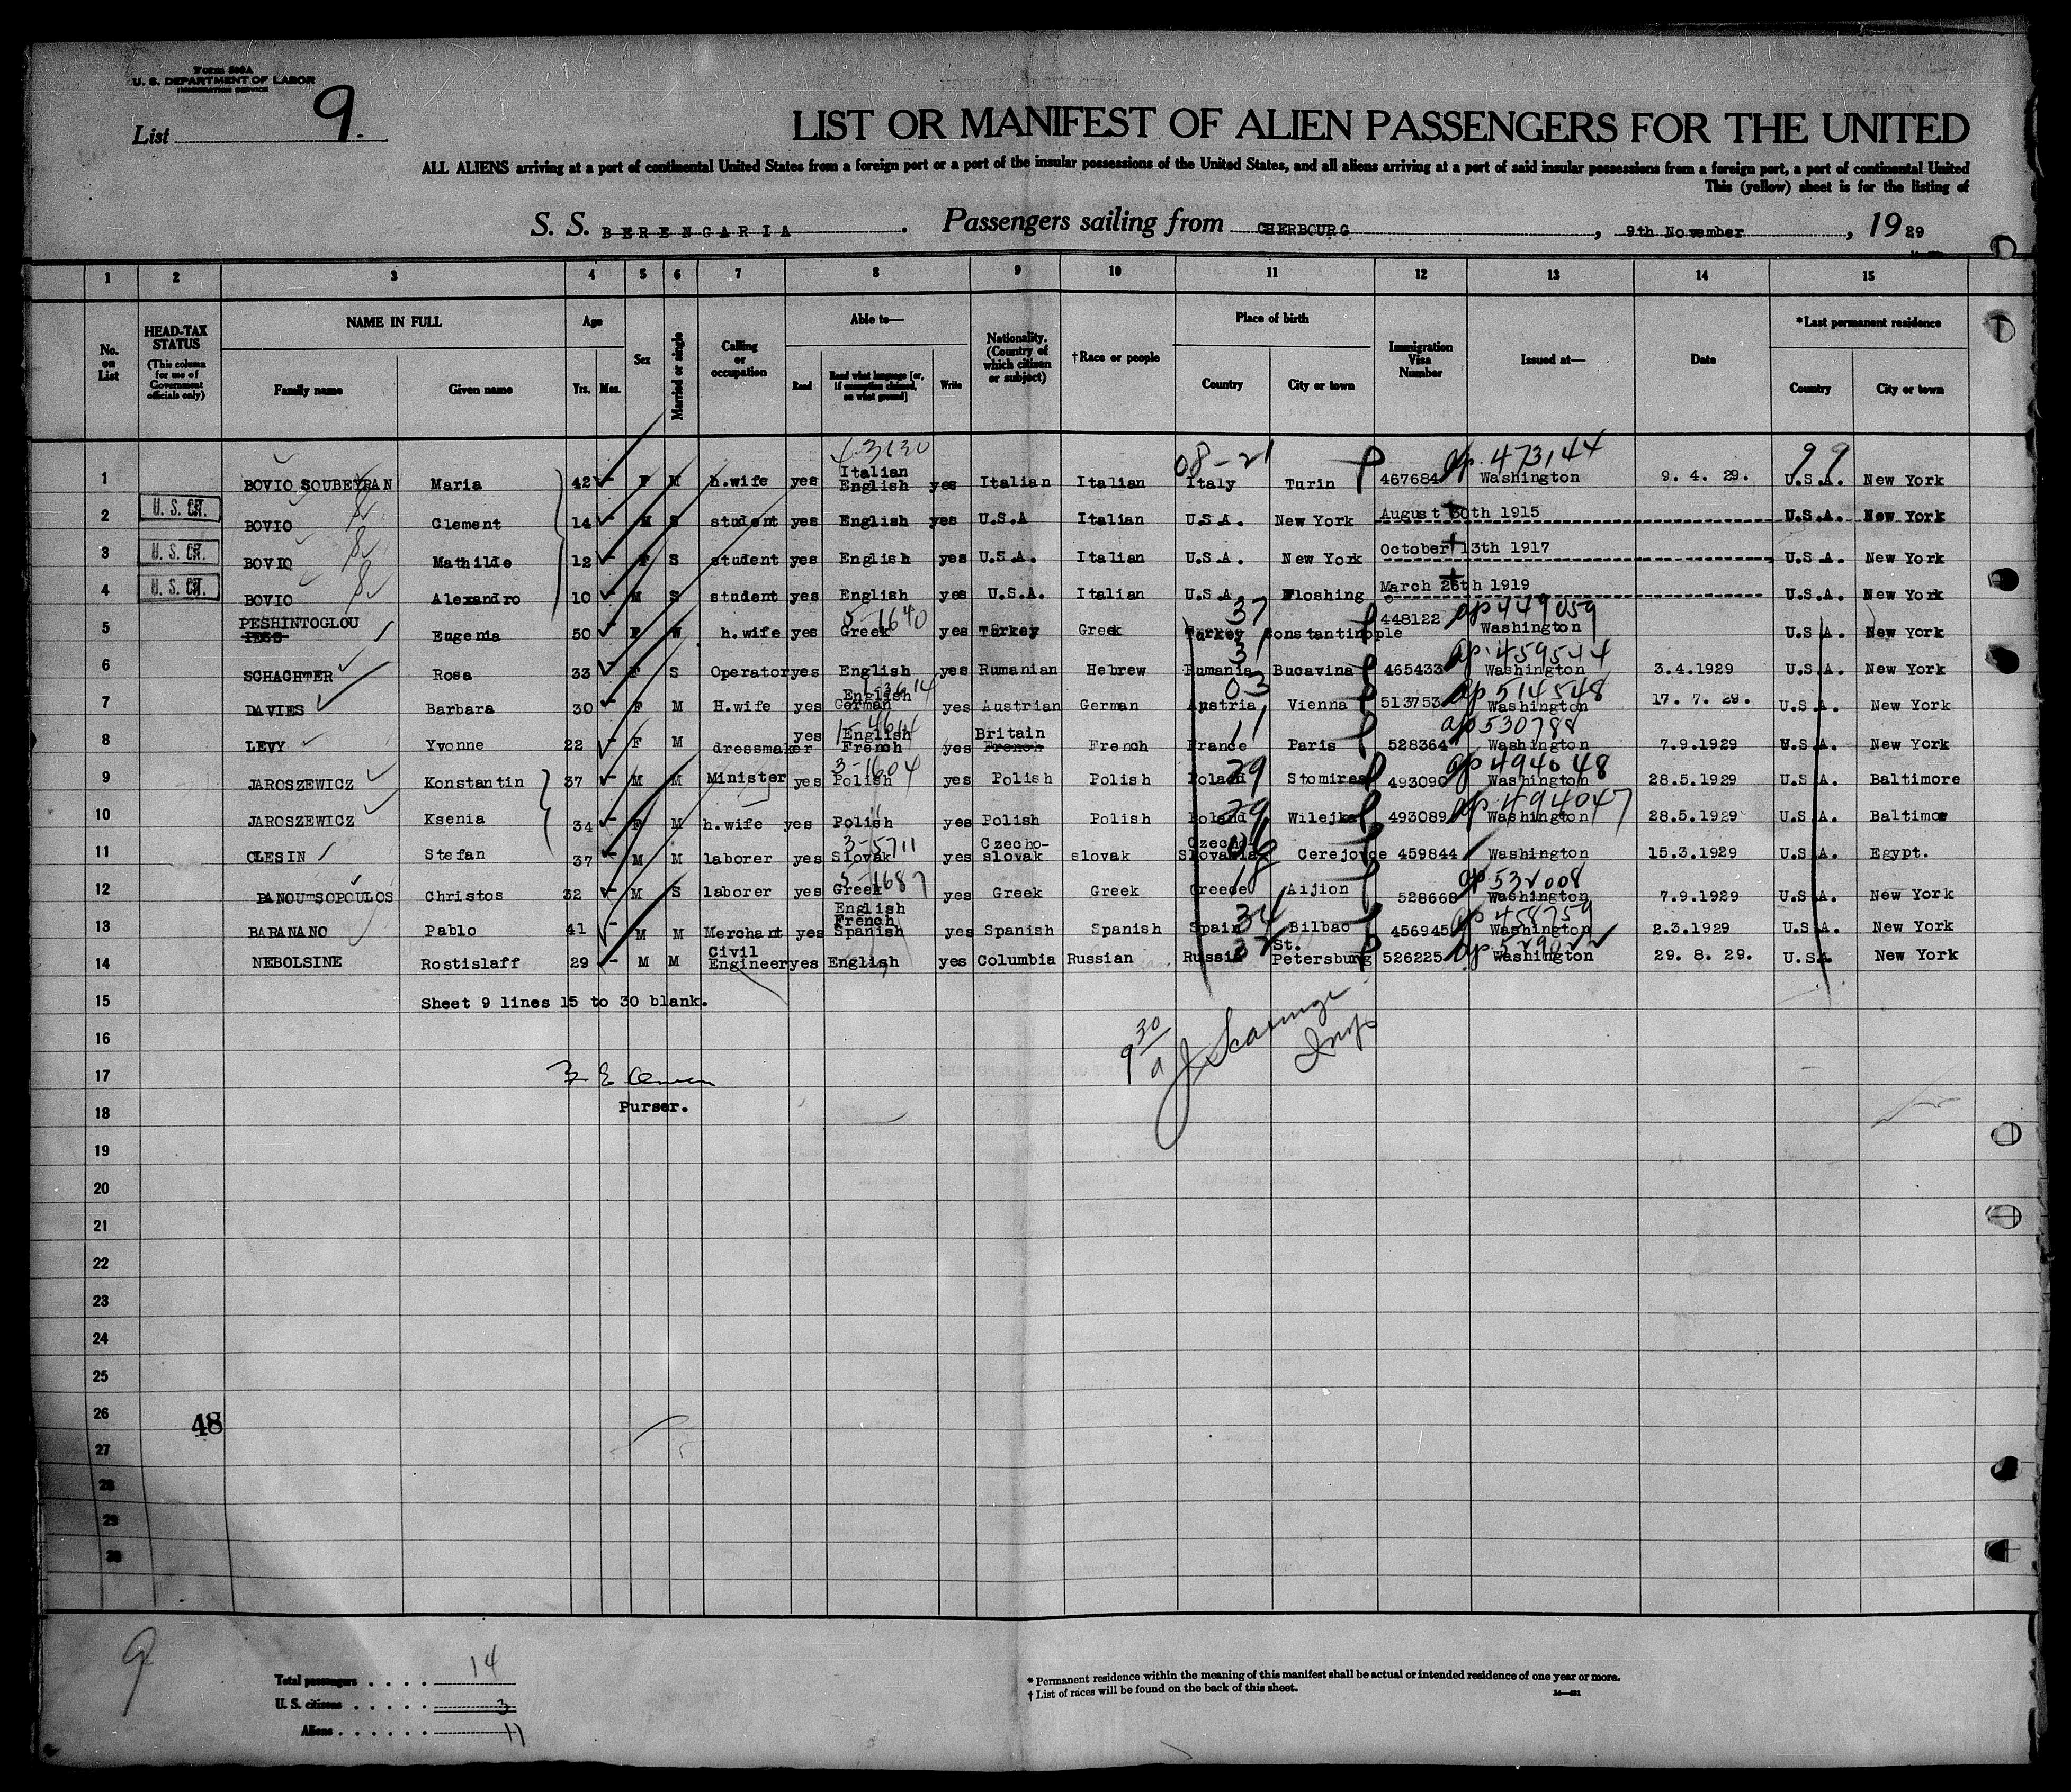 Form 500A
U. S. DEPARTMENT OF LABOR
IMMIGRATION SERVICE
List 9.
LIST OR MANIFEST OF ALIEN PASSENGERS FOR THE UNITED
ALL ALIENS arriving at a port of continental United States from a foreign port or a port of the insular possessions of the United States, and all aliens arriving at a port of said insular possessions from a foreign port, a port of continental United
This (yellow) sheet is for the listing of
S. S. BERENGARIA . Passengers sailing from CHERBOURG , 9th November , 1929
1 2 3 4 5 6 7 8 9 10 11 12 13 14 15
No. on List
HEAD-TAX STATUS (This column for use of Government officials only)
NAME IN FULL Family name Given name
Age Yrs. Mos.
Sex
Married or single
Calling or occupation
Able to— Read Read what language [or, if exemption claimed, on what ground] Write
Nationality. (Country of which citizen or subject)
†Race or people
Place of birth Country City or town
Immigration Visa Number
Issued at—
Date
*Last permanent residence Country City or town
4-3630 08-21 ap. 473144 99
1 BOVIO SOUBEYRAN Maria 42 F M h.wife yes Italian English yes Italian Italian Italy Turin 467684 Washington 9. 4. 29. U.S.A. New York
2 U.S. CIT. BOVIO Clement 14 M S student yes English yes U.S.A Italian U.S.A. New York August 30th 1915 U.S.A. New York
3 U.S. CIT. BOVIO Mathilde 12 F S student yes English yes U.S.A. Italian U.S.A. New York October 13th 1917 U.S.A. New York
4 U.S. CIT. BOVIO Alexandro 10 M S student yes English yes U.S.A. Italian U.S.A. Floshing March 26th 1919 U.S.A. New York
5-1640 37 ap 449059
5 PESHINTOGLOU Eugenia 50 F W h.wife yes Greek yes Turkey Greek Turkey Constantinople 448122 Washington U.S.A. New York
31 ap. 459544
6 SCHACHTER Rosa 33 F S Operator yes English yes Rumanian Hebrew Rumania Bucavina 465433 Washington 3.4.1929 U.S.A. New York
03 ap 514548
7 DAVIES Barbara 30 F M H.wife yes English German yes Austrian German Austria Vienna 513753 Washington 17. 7. 29. U.S.A. New York
11 ap 530788
8 LEVY Yvonne 22 F M dressmaker yes English French yes Britain French French France Paris 528364 Washington 7.9.1929 U.S.A. New York
3-1604 29 ap 494048
9 JAROSZEWICZ Konstantin 37 M M Minister yes Polish yes Polish Polish Poland Stomires 493090 Washington 28.5.1929 U.S.A. Baltimore
29 ap. 494047
10 JAROSZEWICZ Ksenia 34 F M h.wife yes Polish yes Polish Polish Poland Wilejka 493089 Washington 28.5.1929 U.S.A. Baltimoe
3-5711 06
11 OLESIN Stefan 37 M M laborer yes Slovak yes Czecho-slovak slovak Czecho-Slovakia Cerejovce 459844 Washington 15.3.1929 U.S.A. Egypt.
5-1687 18 ap. 532008
12 PANOUTSOPOULOS Christos 32 M S laborer yes Greek yes Greek Greek Greece Aijion 528668 Washington 7.9.1929 U.S.A. New York
34 ap 458759
13 BARANANO Pablo 41 M M Merchant yes English French Spanish yes Spanish Spanish Spain Bilbao 456945 Washington 2.3.1929 U.S.A. New York
ap. 529022
14 NEBOLSINE Rostislaff 29 M M Civil Engineer yes English yes Columbia Russian Russia St. Petersburg 526225 Washington 29. 8. 29. U.S.A. New York
15 Sheet 9 lines 15 to 30 blank.
16
9 30 a
Insp
17
18 Purser.
19
20
21
22
23
24
25
26
48
27
28
29
30
9
Total passengers . . . . 14
U. S. citizens . . . . . 3
Aliens . . . . . . 11
* Permanent residence within the meaning of this manifest shall be actual or intended residence of one year or more.
† List of races will be found on the back of this sheet.